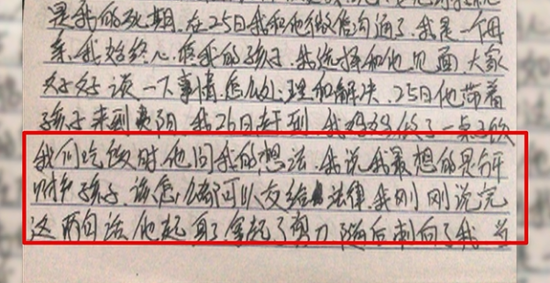 是我的期,在25日我和他微信沟通了,我是一个母
亲,我始终心疼我的孩子,我选择和他见面大家
好好谈一下事情,怎么处理和解决,25日他带着
孩子来到贵阳,我26日赶到,我妈妈做了一桌子饭
我们吃饭时,他问我的想法,我说我最想的是
孩子,该怎么都可以交给法律,我刚刚说完
这两句话,他起身拿起了剪刀随后刺向了我